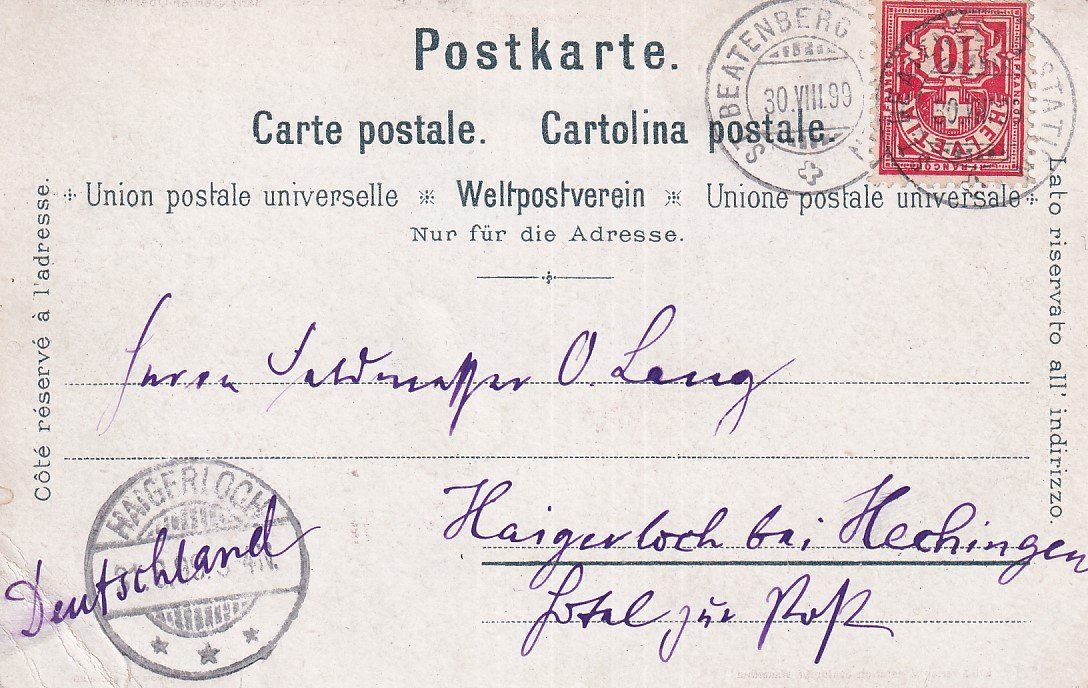 Postkarte.
Carte postale. Cartolina postale.
Union postale universelle Weltpostverein Unione postale universale
Nur für die Adresse.
Côté réservé à l'adresse.
Lato riservato all' indirizzo.
ST. BEATENBERG
30.VIII.99
10
FRANCO
HELVETIA
FRANCO
Herrn Feldmesser O. Lang
Haigerloch bei Hechingen
Hotel zur Post
Deutschland
HAIGERLOCH